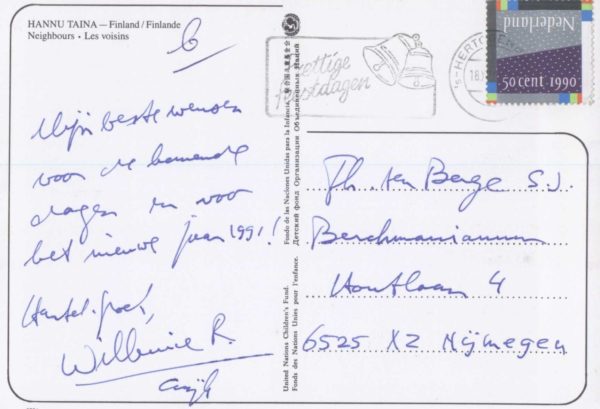 HANNU TAINA — Finland / Finlande
Neighbours · Les voisins
6
Mijn beste wensen
voor de komende
dagen en voor
het nieuwe jaar 1991!
Hartel. groet,
Willemie R.
prettige
feestdagen
's-HERTOGEN
18.
Nederland
50 cent 1990
United Nations Children's Fund. Fondo de las Naciones Unidas para la Infancia. 联合国儿童基金会
Fonds des Nations Unies pour l'enfance. Детский фонд Организации Объединенных Наций
Ph. ten Berge S.J.
Berchmanianum
Houtlaan 4
6525 XZ Nijmegen